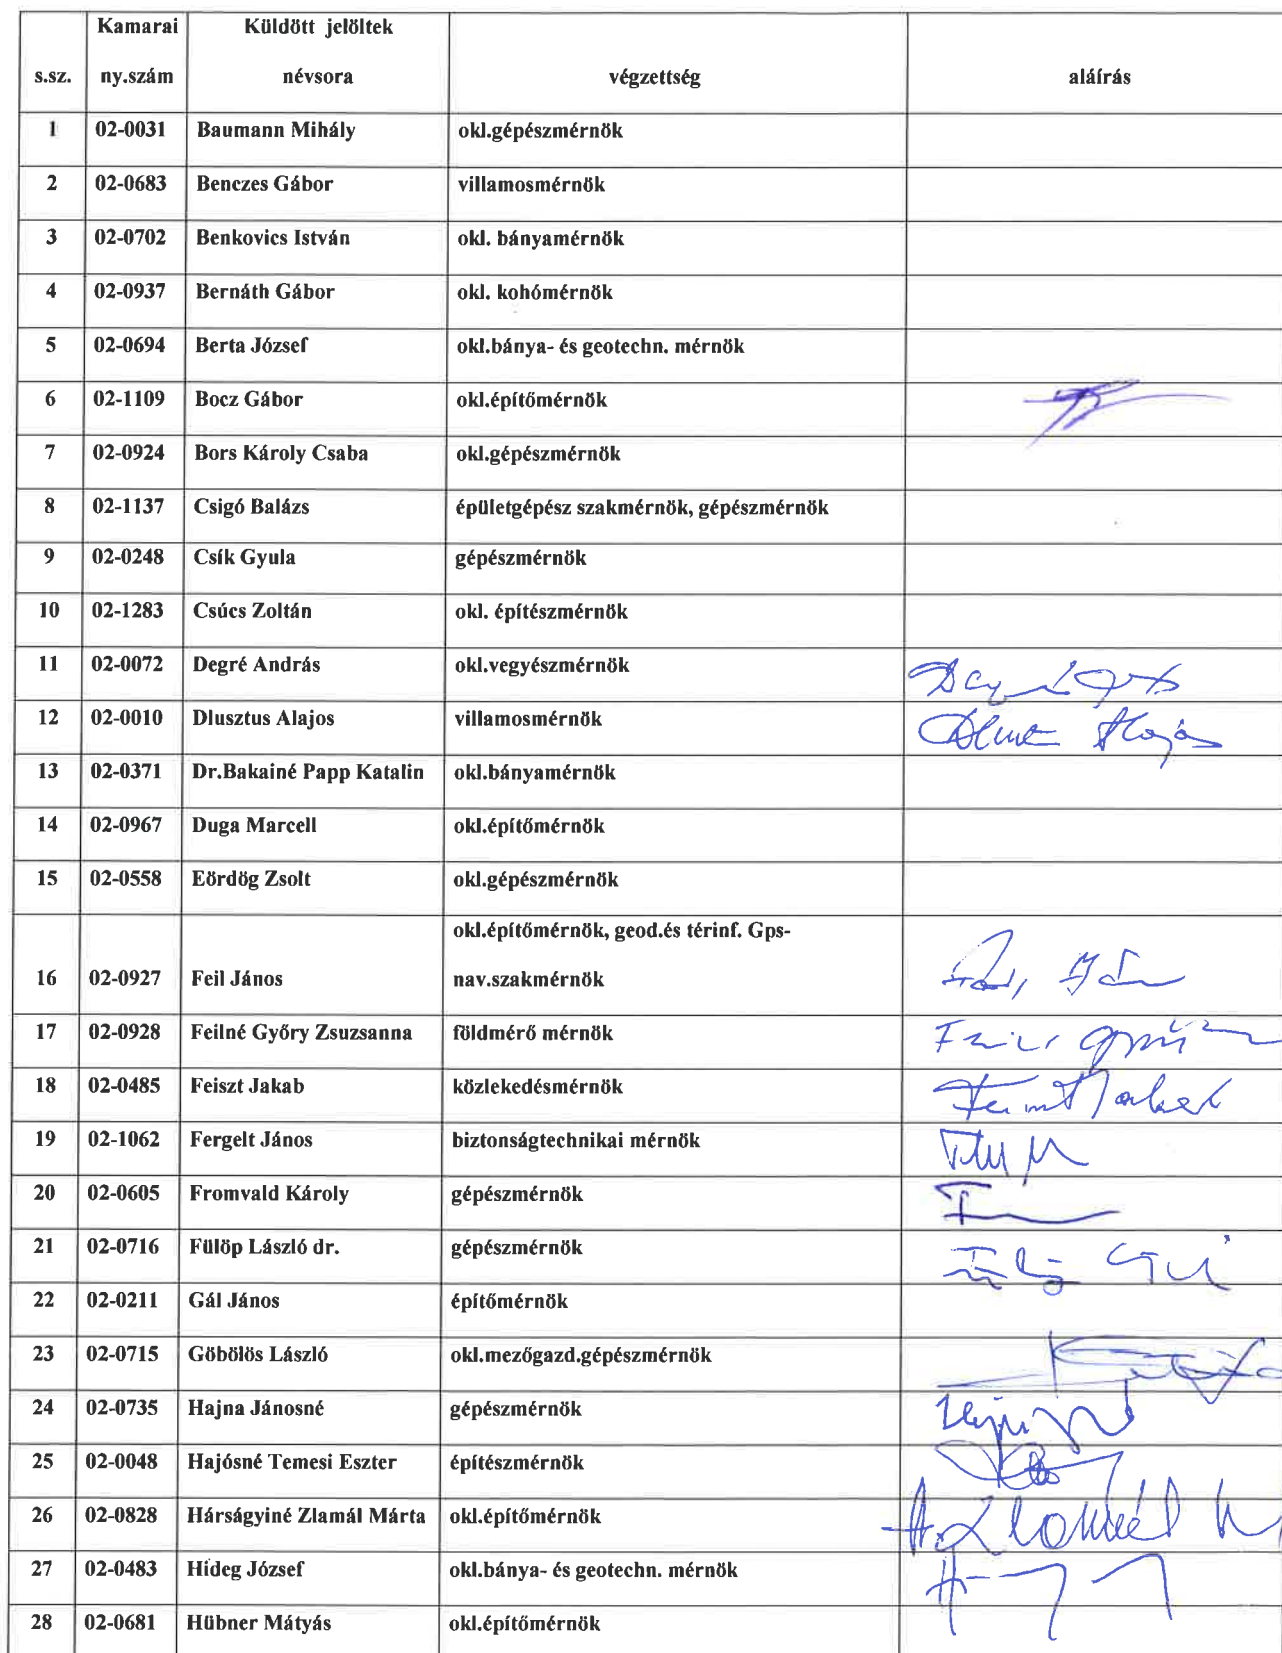 s.sz. Kamarai ny.szám Küldött jelöltek névsora végzettség aláírás
1 02-0031 Baumann Mihály okl.gépészmérnök
2 02-0683 Benczes Gábor villamosmérnök
3 02-0702 Benkovics István okl. bányamérnök
4 02-0937 Bernáth Gábor okl. kohómérnök
5 02-0694 Berta József okl.bánya- és geotechn. mérnök
6 02-1109 Bocz Gábor okl.építőmérnök
7 02-0924 Bors Károly Csaba okl.gépészmérnök
8 02-1137 Csigó Balázs épületgépész szakmérnök, gépészmérnök
9 02-0248 Csík Gyula gépészmérnök
10 02-1283 Csúcs Zoltán okl. építészmérnök
11 02-0072 Degré András okl.vegyészmérnök
12 02-0010 Dlusztus Alajos villamosmérnök
13 02-0371 Dr.Bakainé Papp Katalin okl.bányamérnök
14 02-0967 Duga Marcell okl.építőmérnök
15 02-0558 Eördög Zsolt okl.gépészmérnök
okl.építőmérnök, geod.és térinf. Gps-
16 02-0927 Feil János nav.szakmérnök
17 02-0928 Feilné Győry Zsuzsanna földmérő mérnök
18 02-0485 Feiszt Jakab közlekedésmérnök
19 02-1062 Fergelt János biztonságtechnikai mérnök
20 02-0605 Fromvald Károly gépészmérnök
21 02-0716 Fülöp László dr. gépészmérnök
22 02-0211 Gál János építőmérnök
23 02-0715 Göbölös László okl.mezőgazd.gépészmérnök
24 02-0735 Hajna Jánosné gépészmérnök
25 02-0048 Hajósné Temesi Eszter építészmérnök
26 02-0828 Hárságyiné Zlamál Márta okl.építőmérnök
27 02-0483 Hideg József okl.bánya- és geotechn. mérnök
28 02-0681 Hübner Mátyás okl.építőmérnök